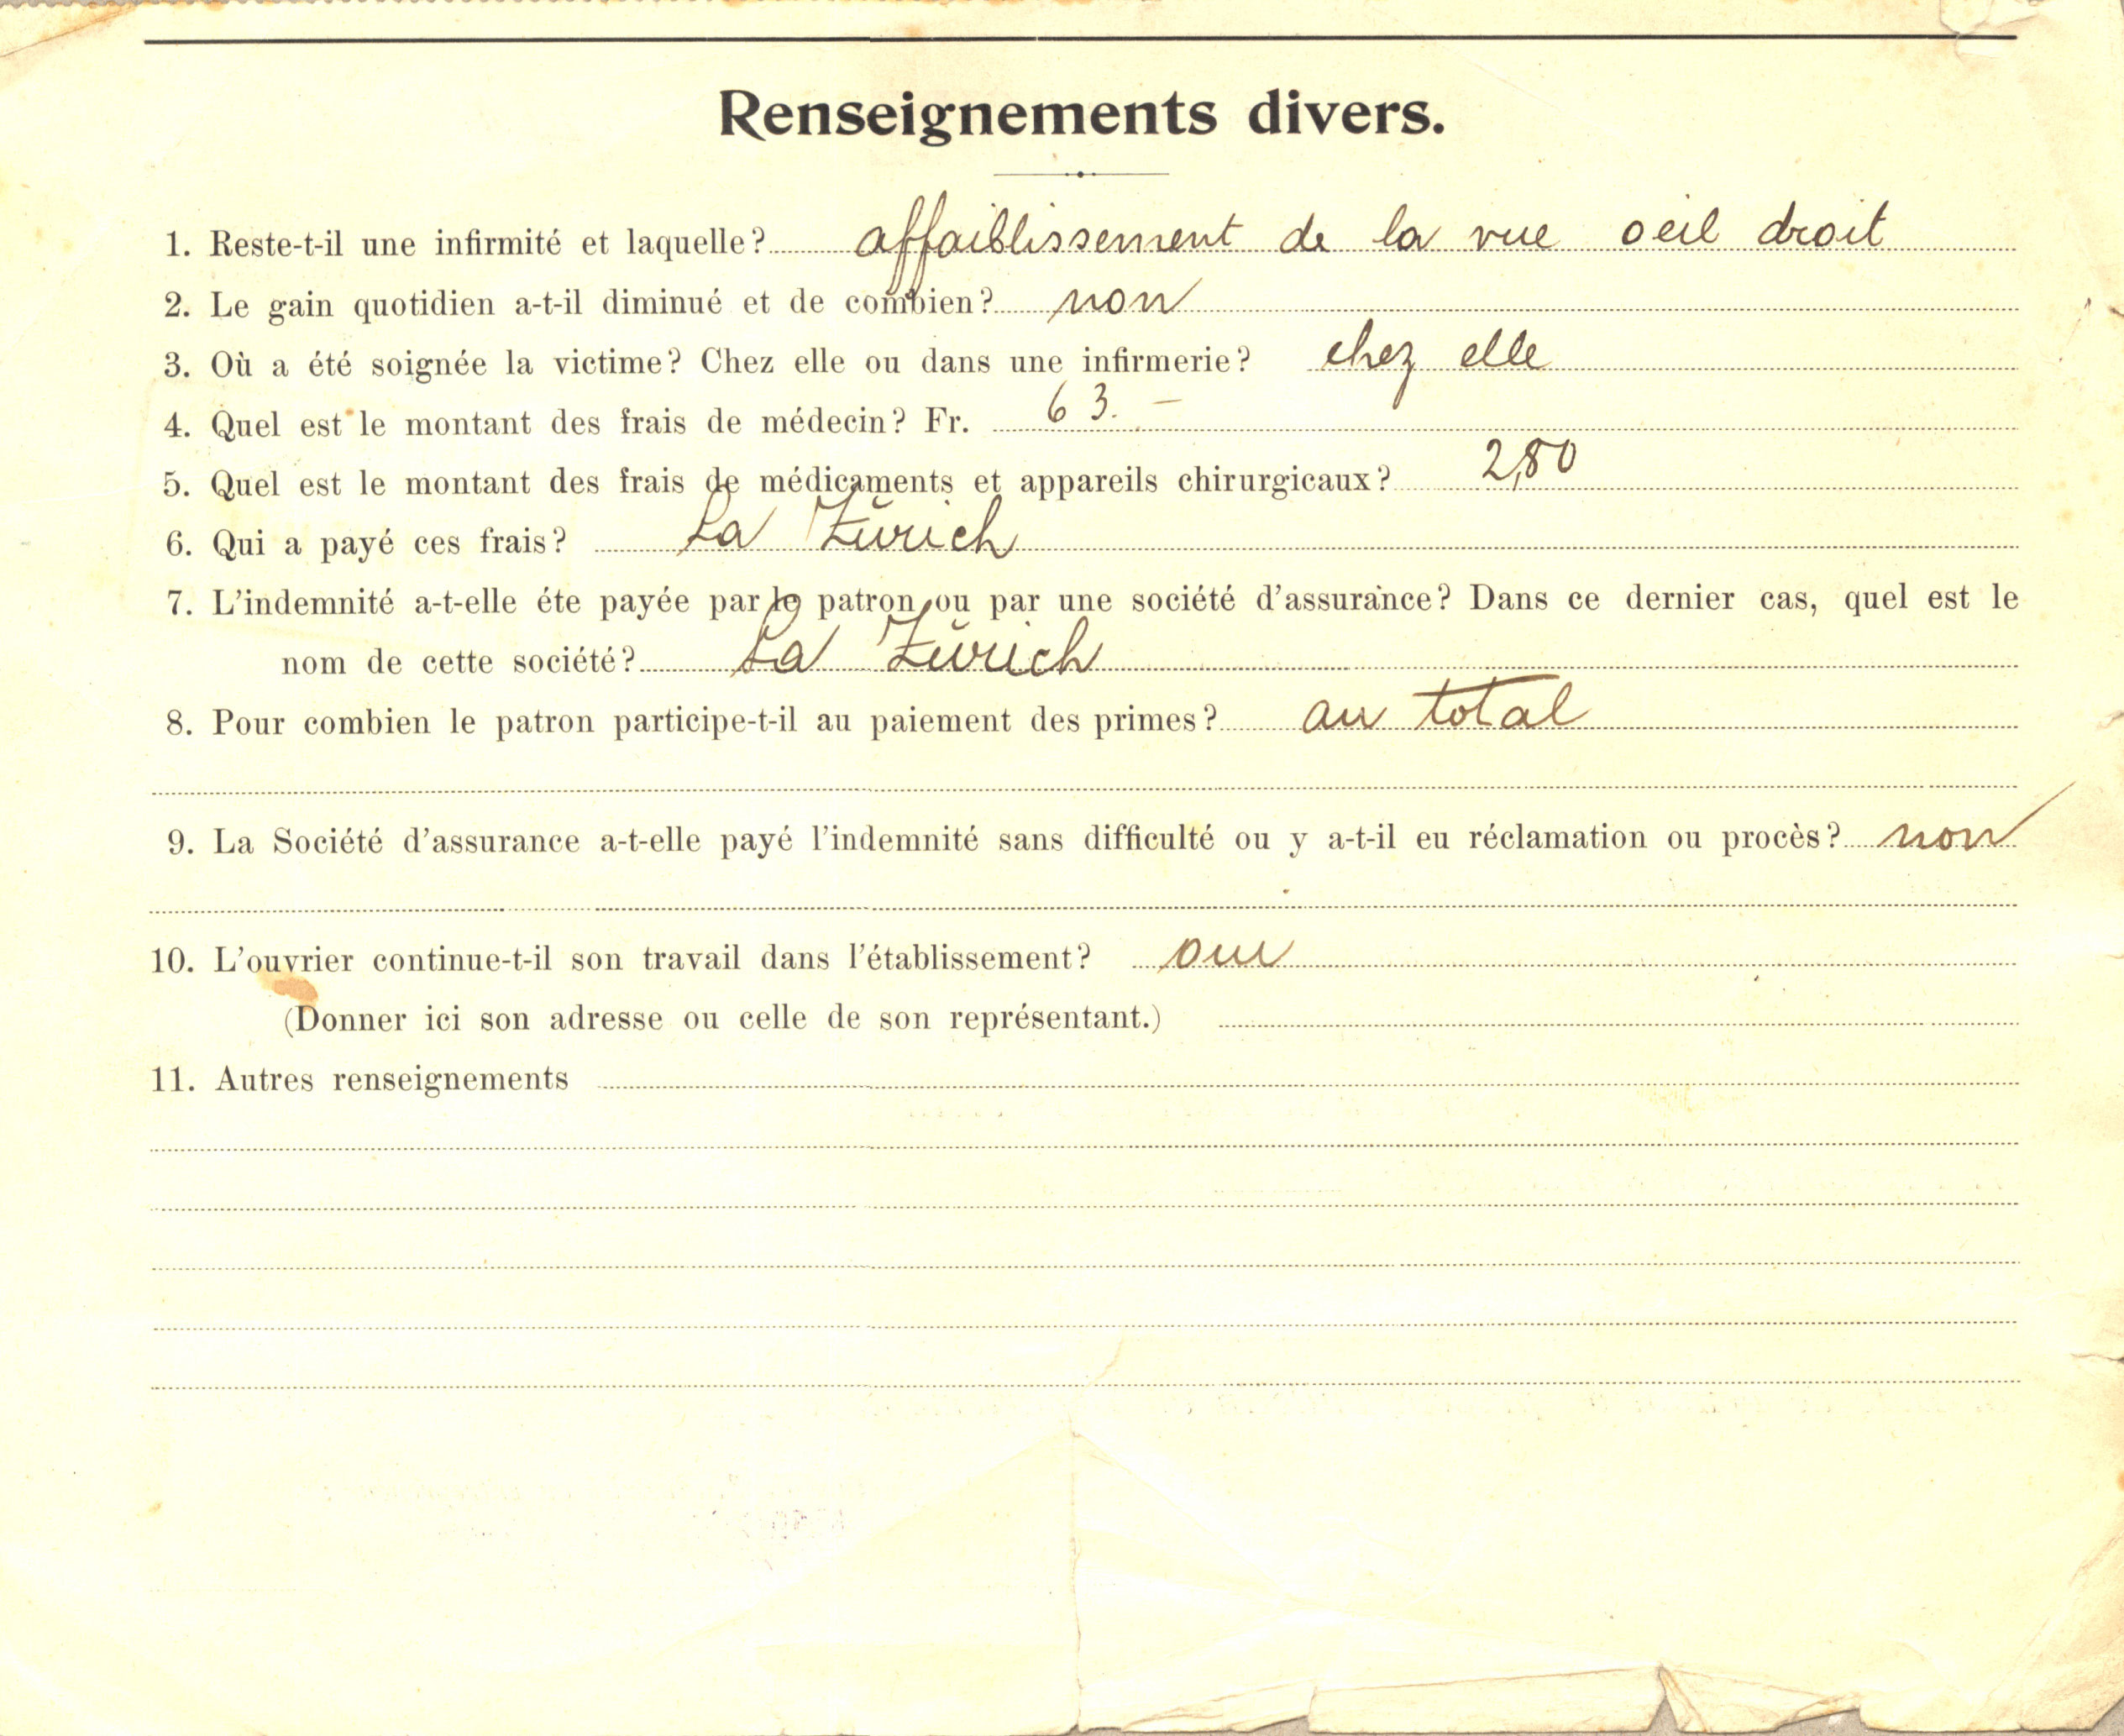 Renseignements divers.
1. Reste-t-il une infirmité et laquelle? affaiblissement de la vue oeil droit
2. Le gain quotidien a-t-il diminué et de combien? non
3. Où a été soignée la victime? Chez elle ou dans une infirmerie? chez elle
4. Quel est le montant des frais de médecin? Fr. 63.—
5. Quel est le montant des frais de médicaments et appareils chirurgicaux? 2,80
6. Qui a payé ces frais? La Zürich
7. L'indemnité a-t-elle éte payée par le patron ou par une société d'assurance? Dans ce dernier cas, quel est le
nom de cette société? La Zürich
8. Pour combien le patron participe-t-il au paiement des primes? au total
9. La Société d'assurance a-t-elle payé l'indemnité sans difficulté ou y a-t-il eu réclamation ou procès? non
10. L'ouvrier continue-t-il son travail dans l'établissement? oui
(Donner ici son adresse ou celle de son représentant.)
11. Autres renseignements